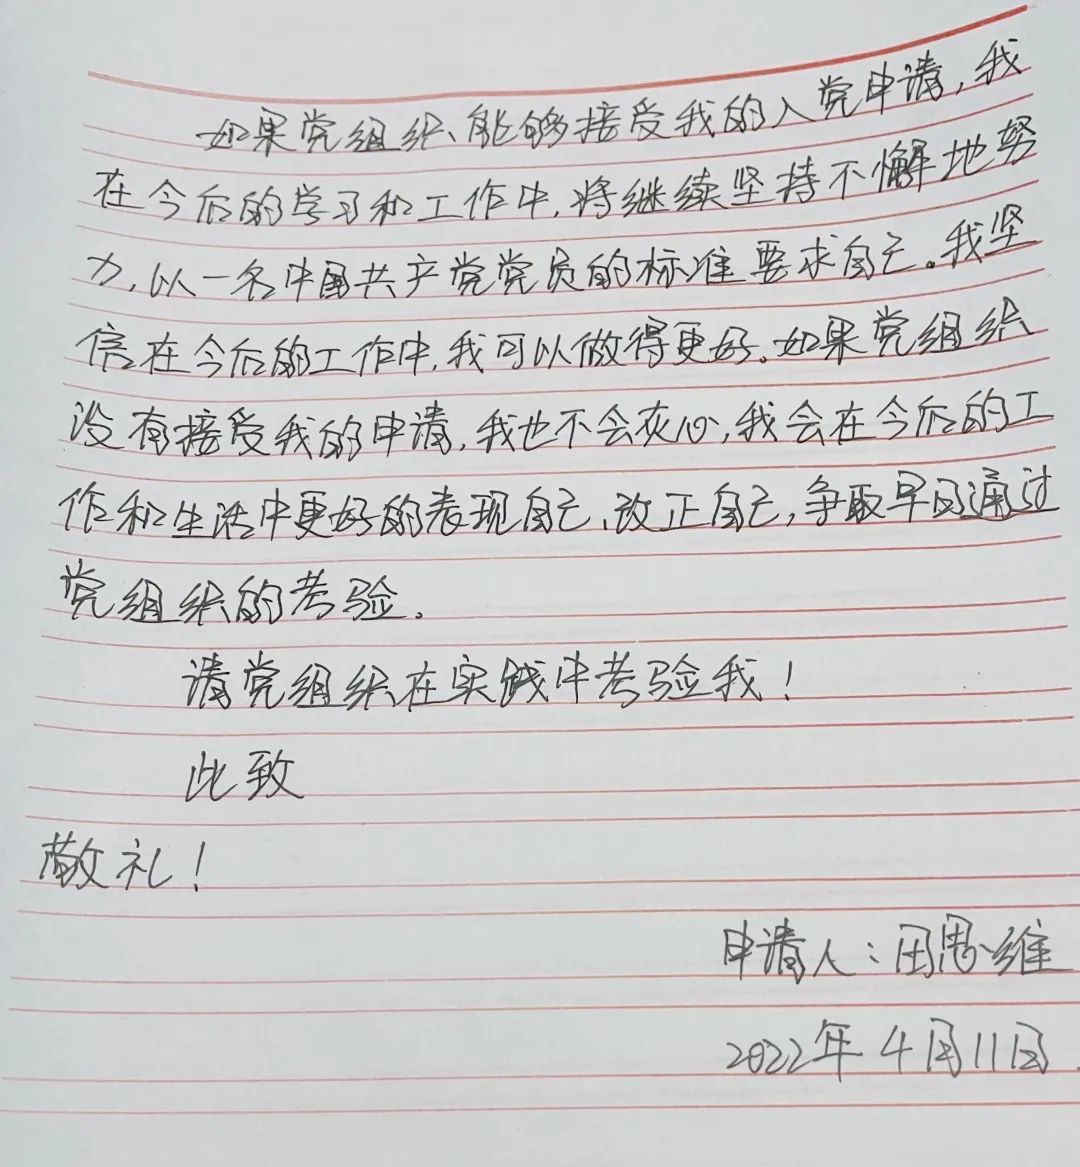 如果党组织能够接受我的入党申请,我
在今后的学习和工作中,将继续坚持不懈地努
力,以一名中国共产党党员的标准要求自己。我坚
信在今后的工作中,我可以做得更好。如果党组织
没有接受我的申请,我也不会灰心,我会在今后的工
作和生活中更好的表现自己、改正自己,争取早日通过
党组织的考验。
请党组织在实践中考验我!
此致
敬礼!
申请人:田思维
2022年4月11日